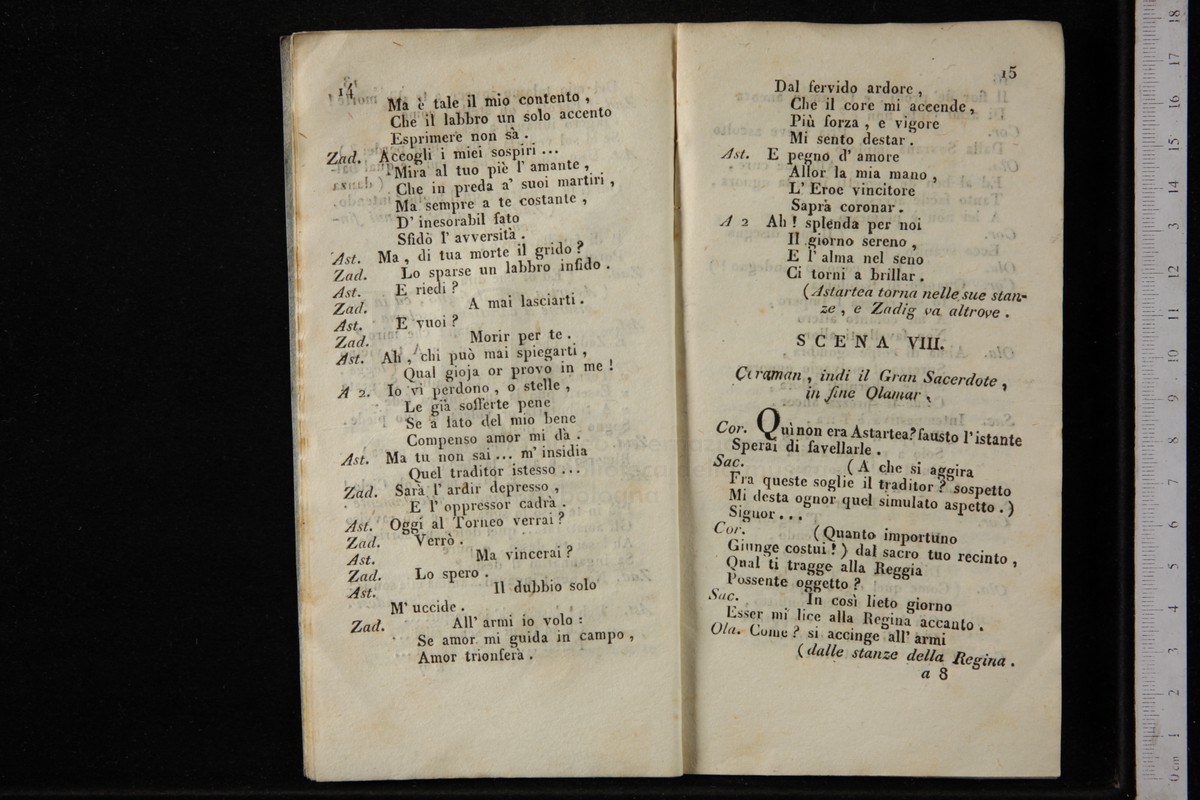 14
Ma è tale il mio contento ,
Che il labbro un solo accento
Esprimere non sà .
Zad. Accogli i miei sospiri ...
Mira al tuo piè l' amante ,
Che in preda a' suoi martiri ,
Ma sempre a te costante ,
D' inesorabil fato
Sfidò l' avversità .
Ast. Ma , di tua morte il grido ?
Zad. Lo sparse un labbro infido .
Ast. E riedi ?
Zad. A mai lasciarti .
Ast. E vuoi ?
Zad. Morir per te .
Ast. Ah , chi può mai spiegarti ,
Qual gioja or provo in me !
A 2. Io vi perdono , o stelle ,
Le già sofferte pene
Se a lato del mio bene
Compenso amor mi dà .
Ast. Ma tu non sai ... m' insidia
Quel traditor istesso ...
Zad. Sarà l' ardir depresso ,
E l' oppressor cadrà .
Ast. Oggi al Torneo verrai ?
Zad. Verrò .
Ast. Ma vincerai ?
Zad. Lo spero .
Ast. Il dubbio solo
M' uccide .
Zad. All' armi io volo :
Se amor mi guida in campo ,
Amor trionferà .
15
Dal fervido ardore ,
Che il core mi accende ,
Più forza , e vigore
Mi sento destar .
Ast. E pegno d' amore
Allor la mia mano ,
L' Eroe vincitore
Saprà coronar .
A 2 Ah ! splenda per noi
Il giorno sereno ,
E l' alma nel seno
Ci torni a brillar .
(Astartea torna nelle sue stan-
ze , e Zadig va altrove .
SCENA VIII.
Coraman , indi il Gran Sacerdote ,
in fine Olamar .
Cor. Quì non era Astartea? fausto l'istante
Sperai di favellarle .
Sac. (A che si aggira
Fra queste soglie il traditor ? sospetto
Mi desta ognor quel simulato aspetto .)
Signor ...
Cor. (Quanto importuno
Giunge costui !) dal sacro tuo recinto ,
Qual ti tragge alla Reggia
Possente oggetto ?
Sac. In così lieto giorno
Esser mi lice alla Regina accanto .
Ola. Come ? si accinge all' armi
(dalle stanze della Regina .
a 8